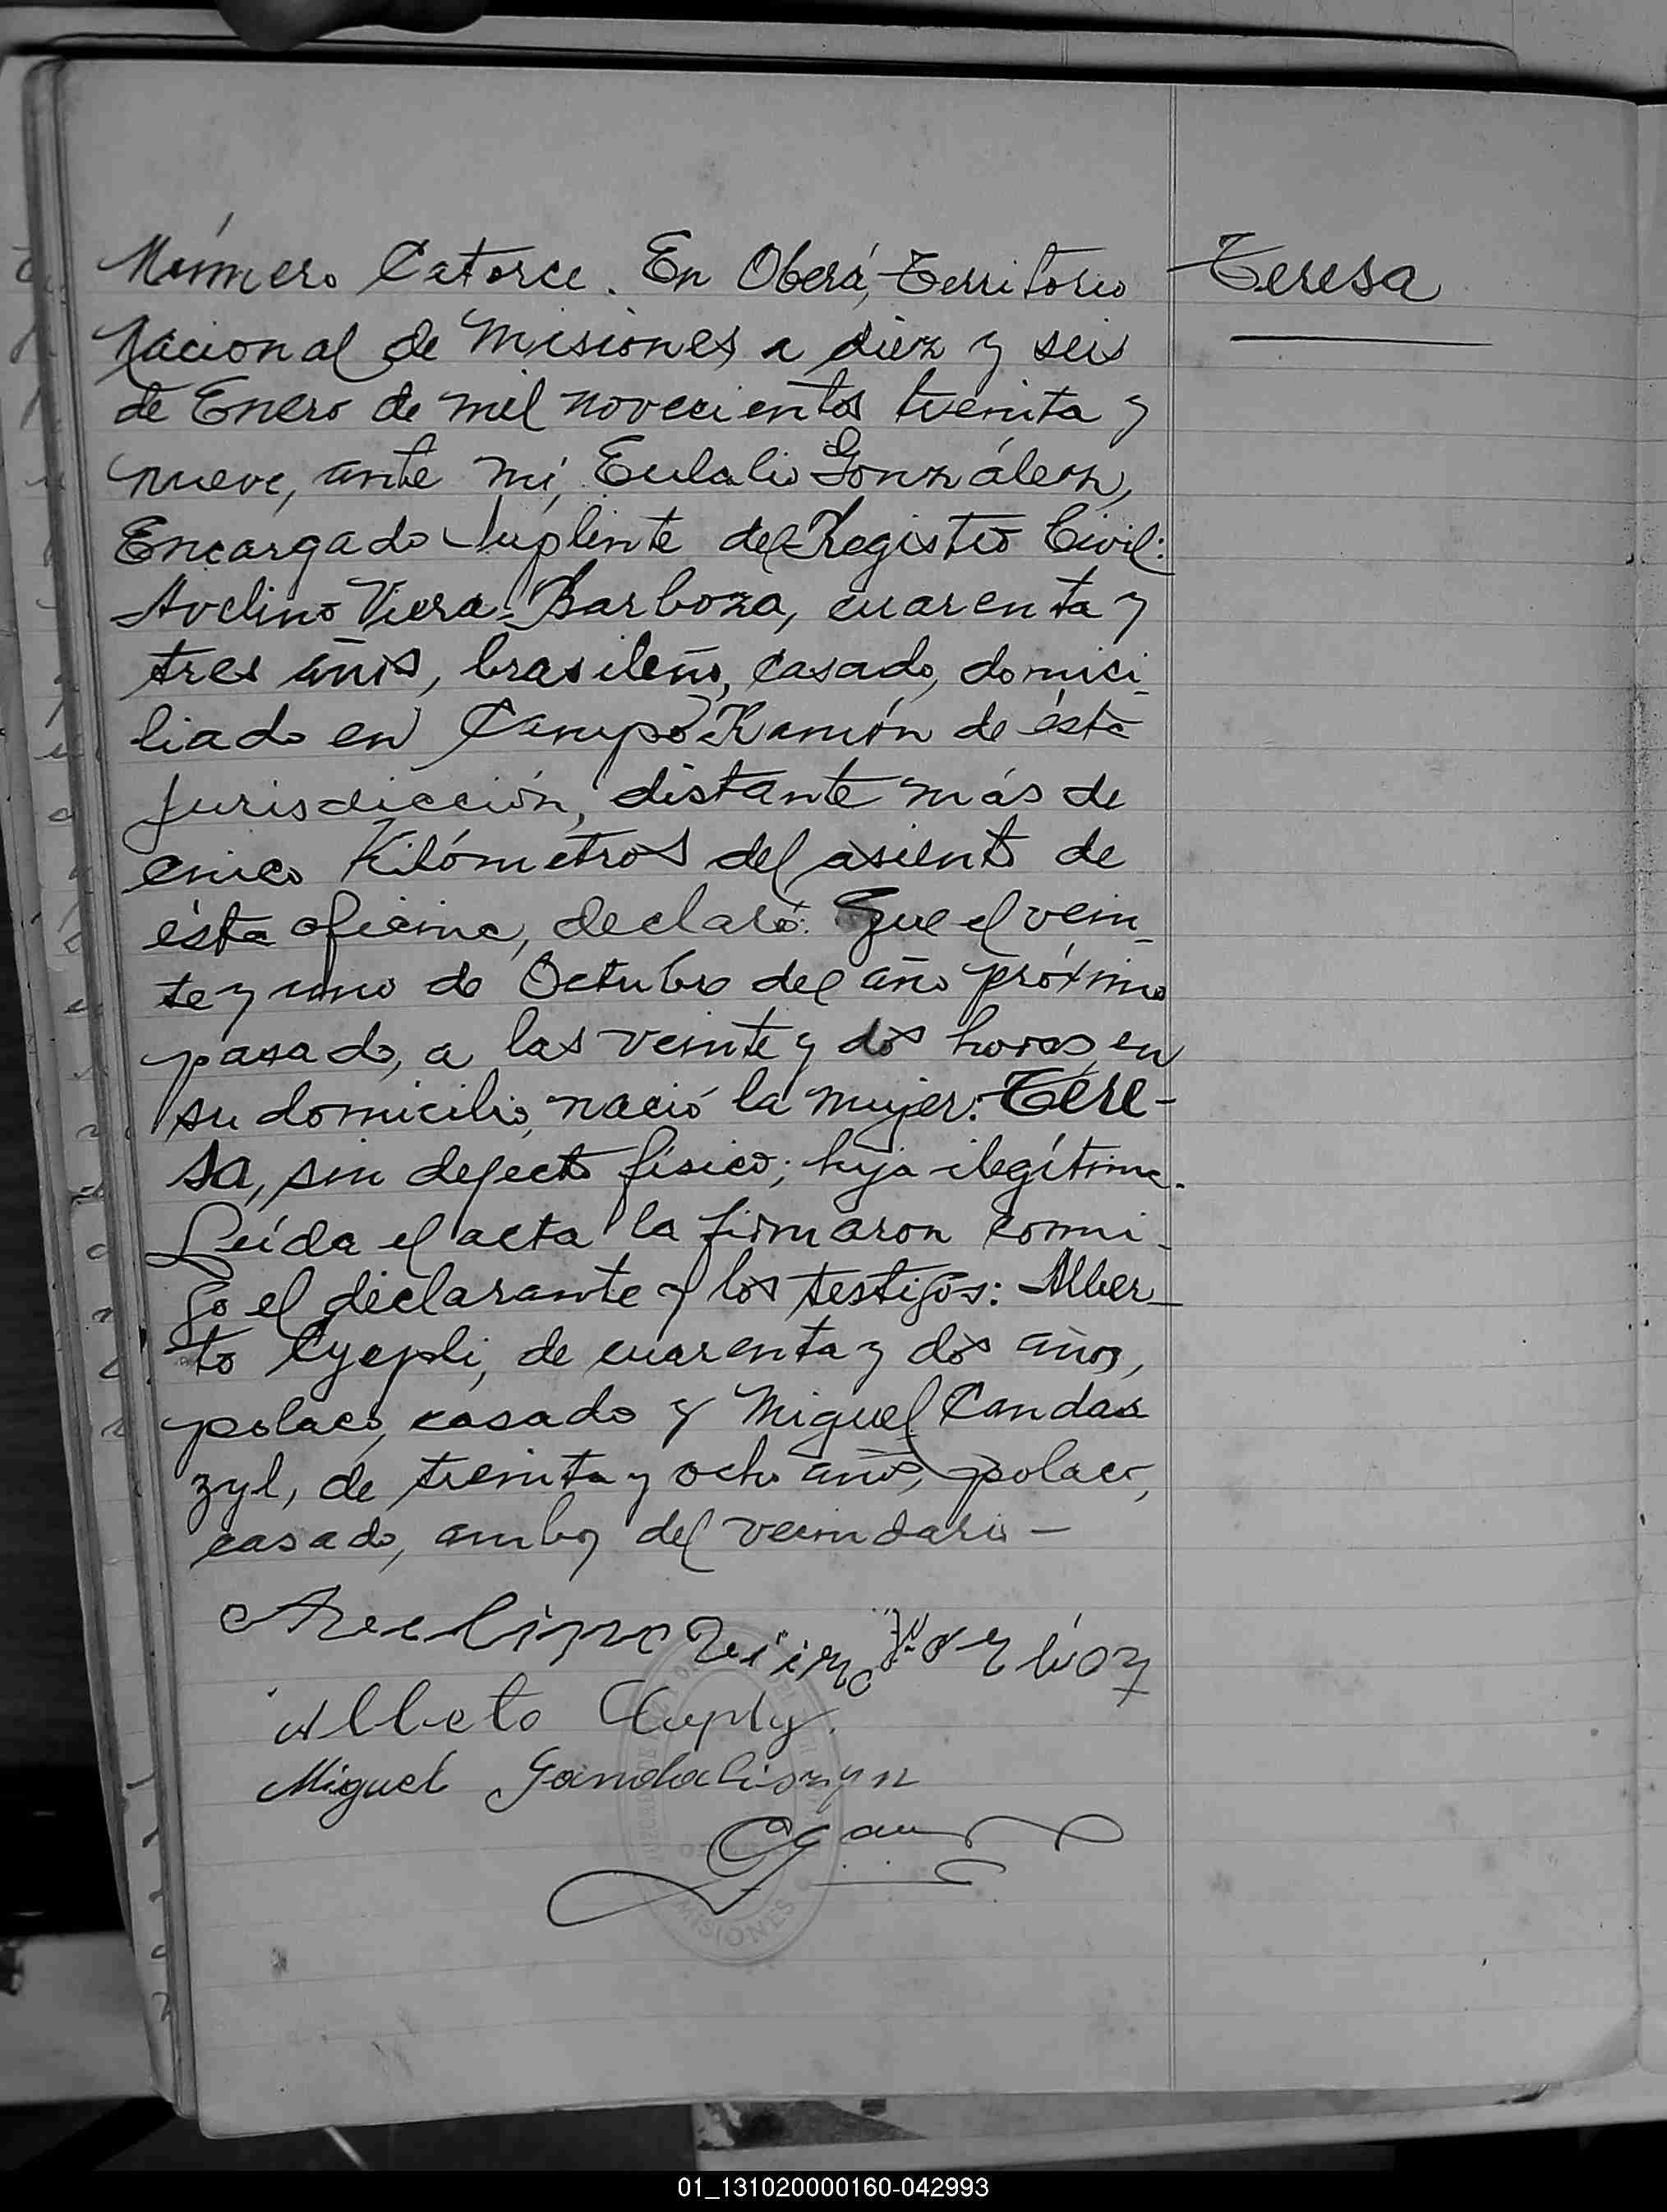 Número Catorce. En Oberá, Territorio
Nacional de Misiones a diez y seis
de Enero de mil novecientos treinta y
nueve, ante mí, Eulalio González,
Encargado Suplente del Registro Civil:
Avelino Viera Barboza, cuarenta y
tres años, brasileño, casado, domici-
liado en Campo Ramón de ésta
jurisdicción, distante más de
cinco Kilómetros del asiento de
ésta oficina, declaró: Que el vein-
te y uno de Octubre del año próximo
pasado, a las veinte y dos horas, en
su domicilio, nació la mujer: Tere-
sa, sin defecto físico; hija ilegítima.
Leída el acta la firmaron conmi-
go el declarante y los testigos: Alber-
to Cyepli, de cuarenta y dos años,
polaco, casado y Miguel Candas
zyl, de treinta y ocho años, polaco,
casado, ambos del vecindario -
Avelino
Alberto
Miguel
MISIONES
Teresa
01_131020000160-042993